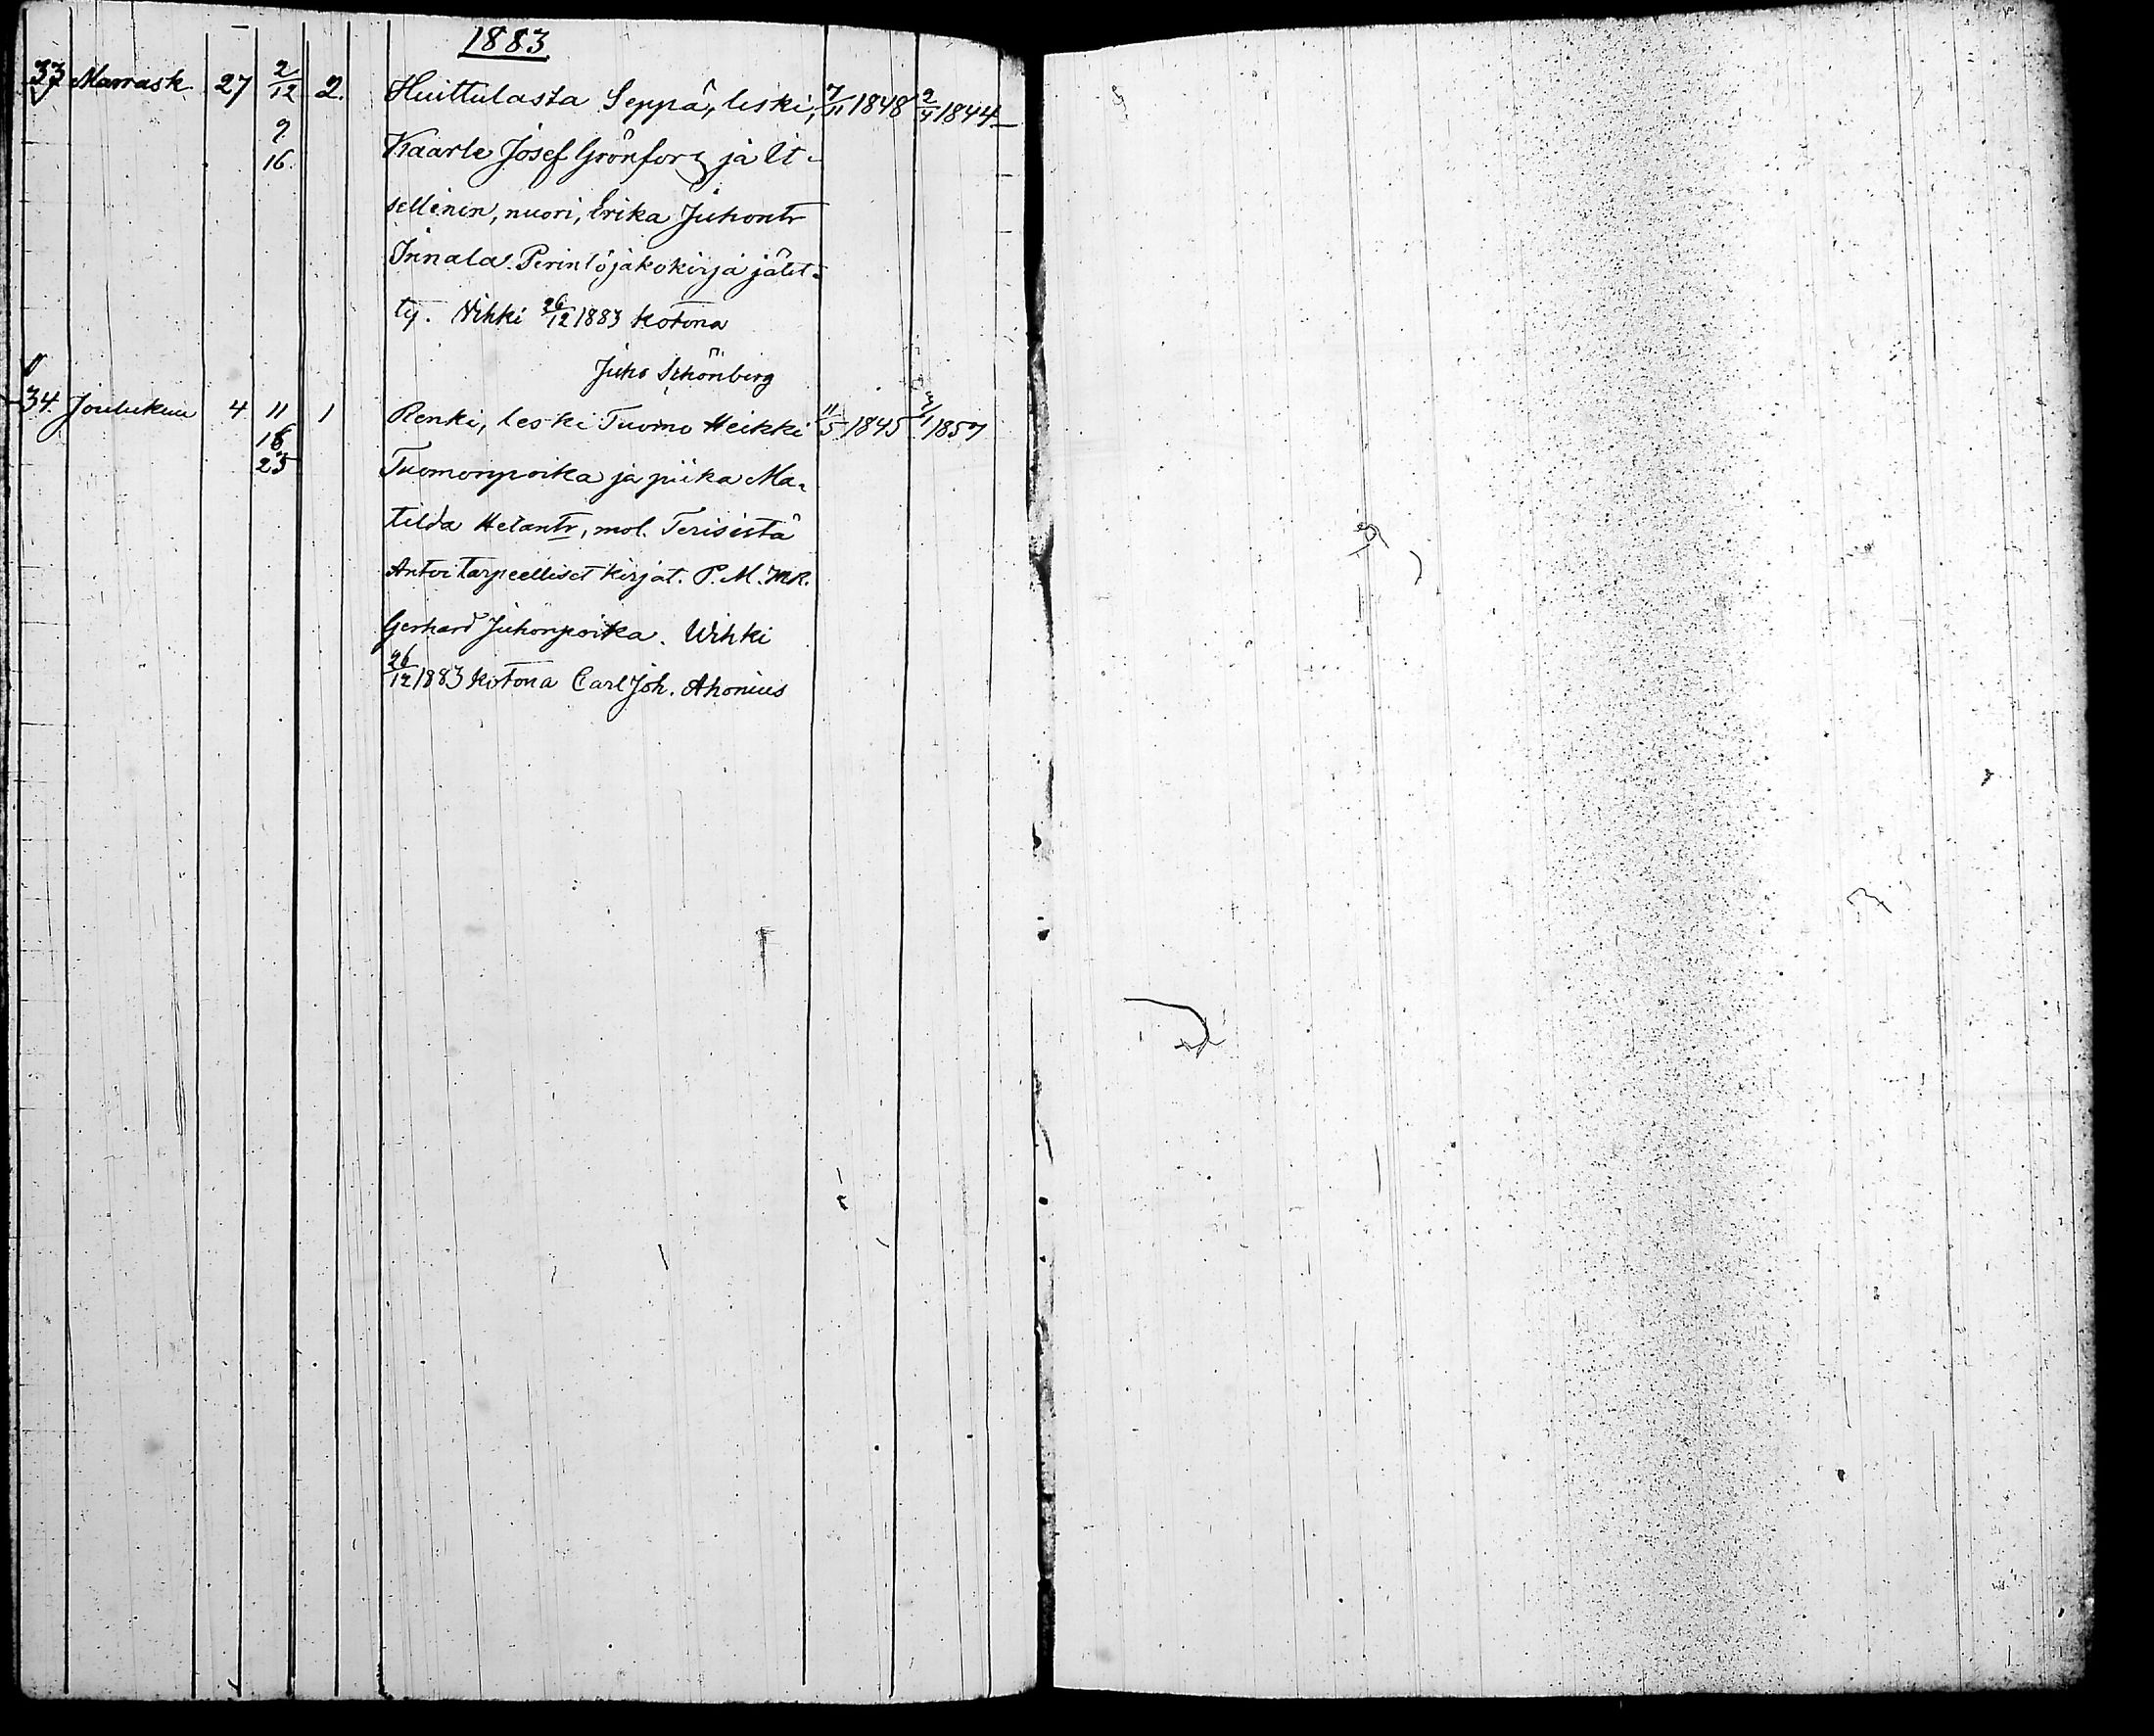 1883
33 Marrask. 27 2/12 2. Huittulasta Seppä, leski, 7/11 1848 2/4 1844
9. Kaarle Josef Grönfors ja It-
16. sellinen, nuori, Erika Juhontr
Innala. Perintöjakokirja jätet-
ty. Vihki 26/12 1883 kotona
Juho Schönberg
34. Joulukuu 4 11 1 Renki, leski Tuomo Heikki 11/5 1845 3/1 1857
18 Tuomonpoika ja piika Ma-
25 tilda Heliantr, mol. Terisistä
Antoi tarpeelliset kirjat. P. M. MR.
Gerhard Juhonpoika. Wihki
26/12 1883 kotona Carl Joh. Ahonius